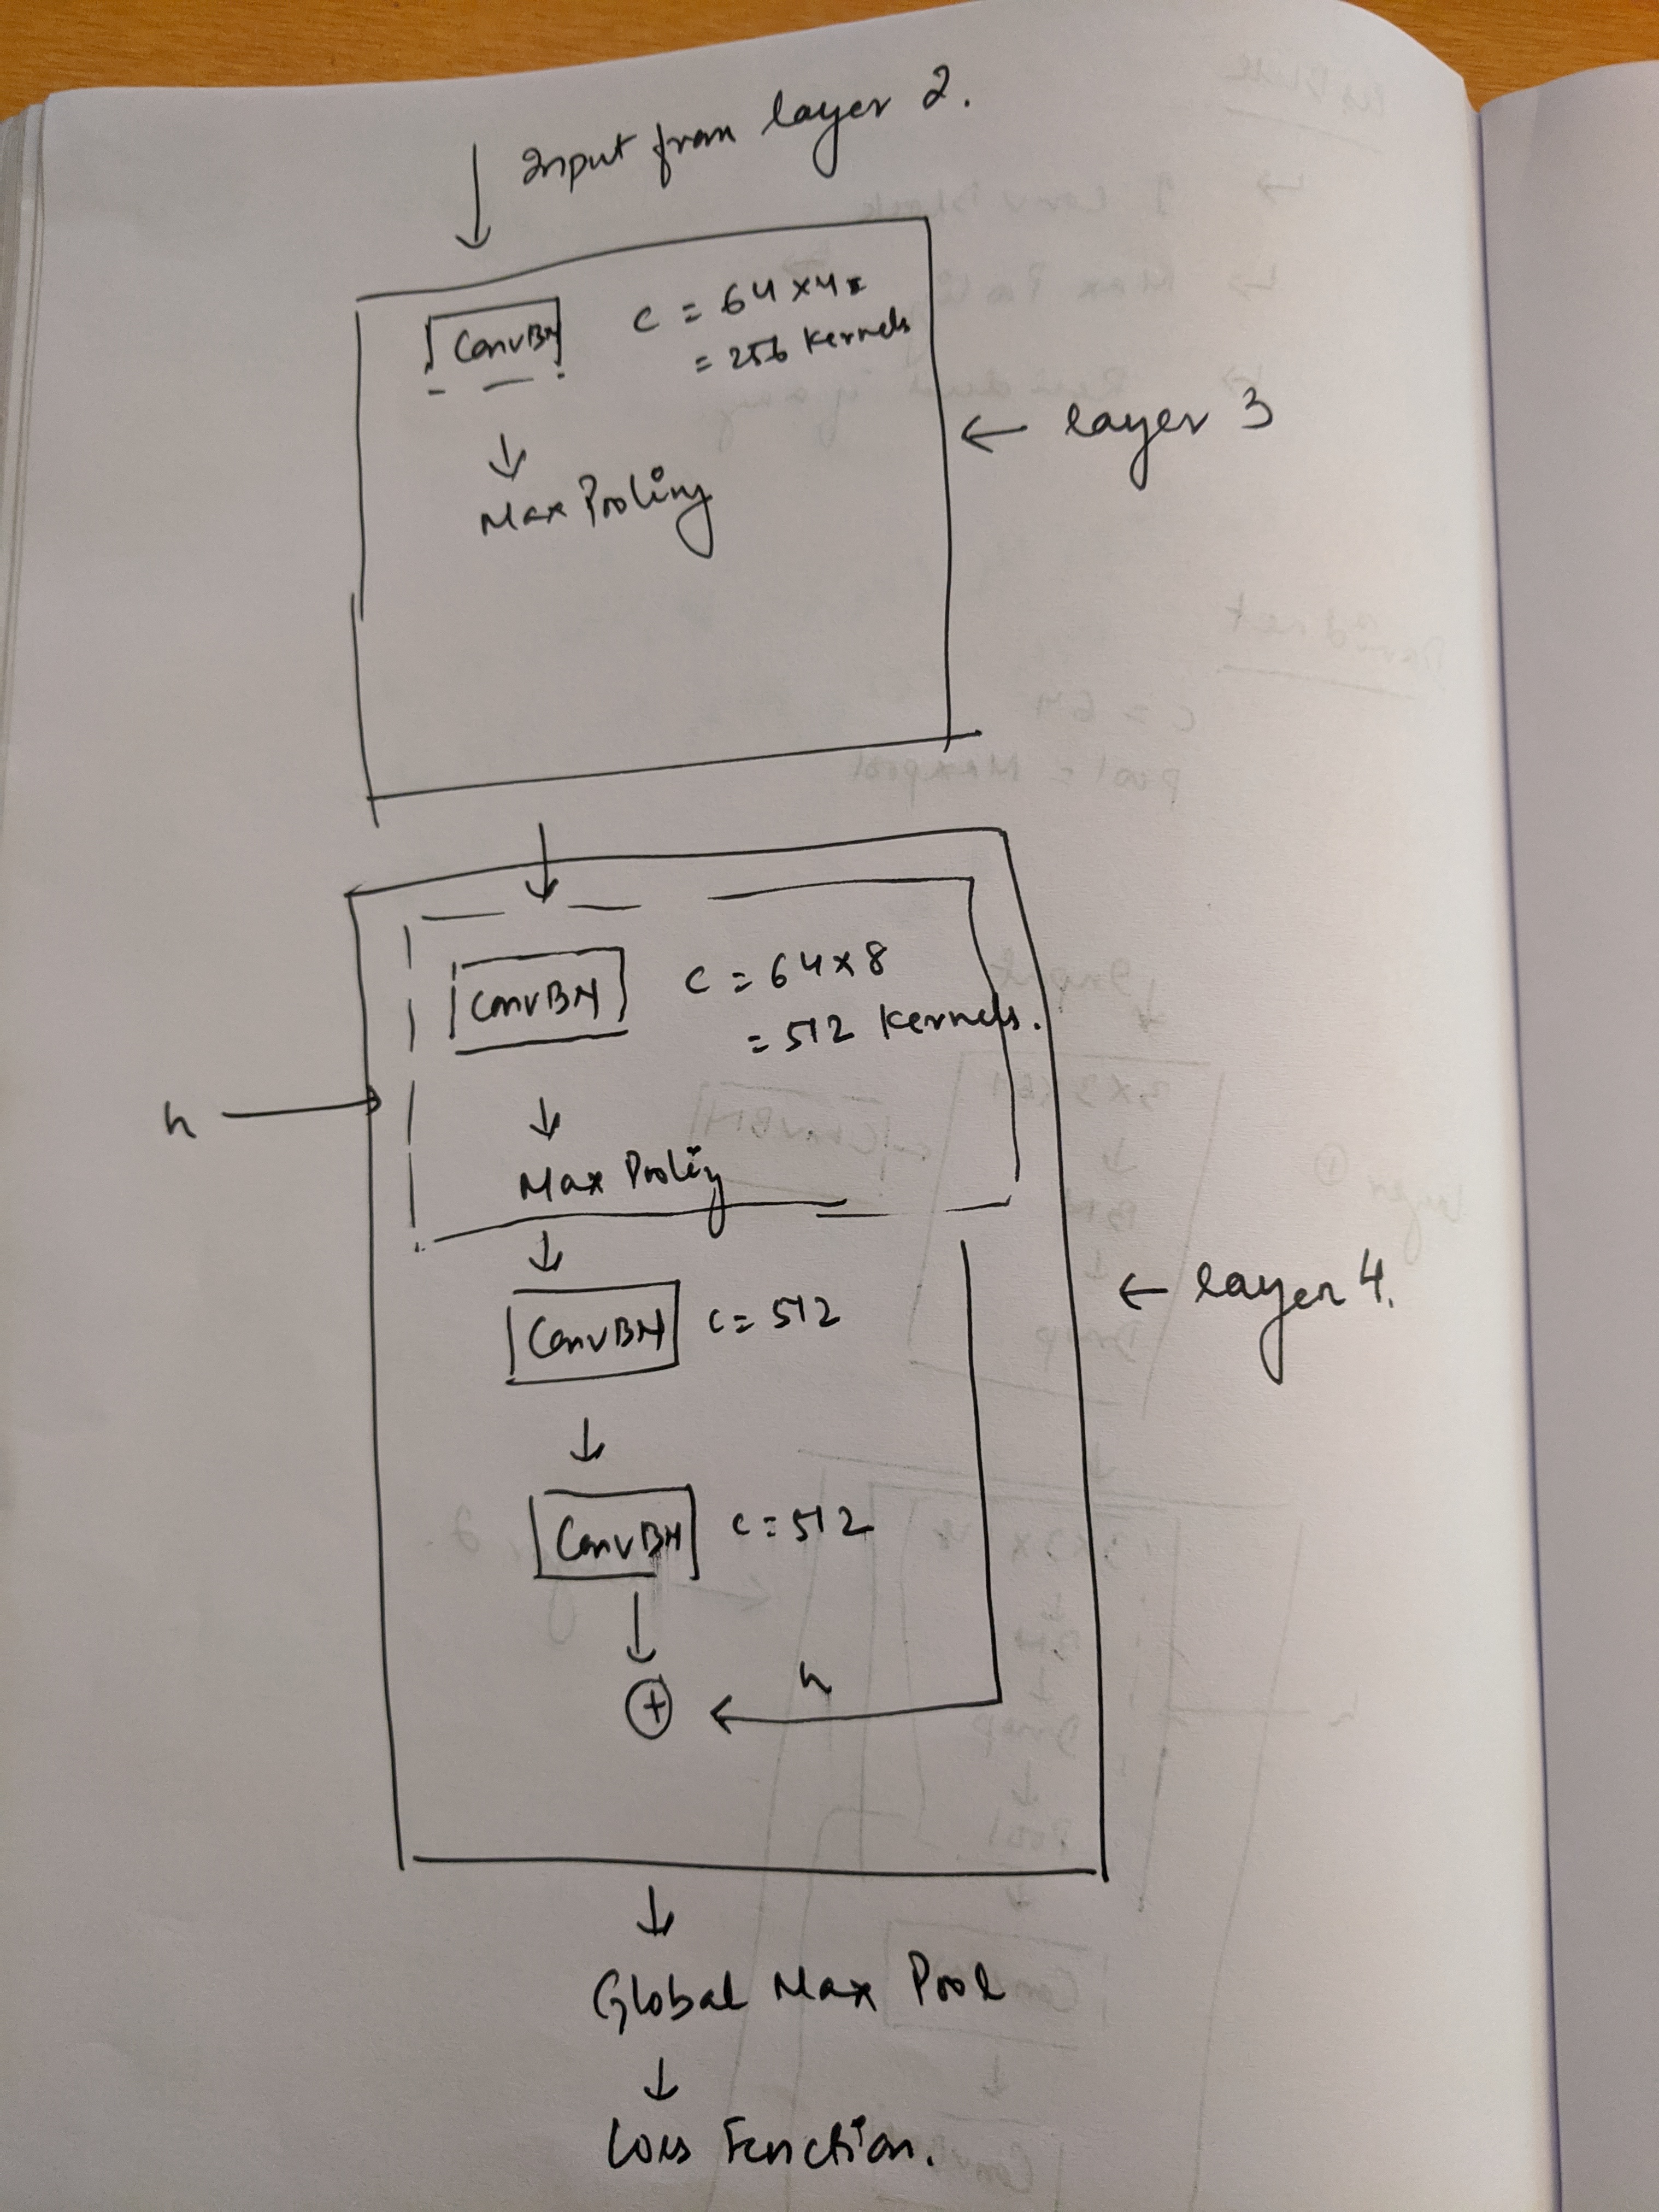 Input from layer 2.
ConvBN C = 64 x 4 =
= 256 Kernels
Max Pooling
← layer 3
ConvBN C = 64 x 8
= 512 Kernels.
h
Max Pooling
ConvBN C = 512
← layer 4.
ConvBN C = 512
+ h
Global Max Pool
Loss Function.